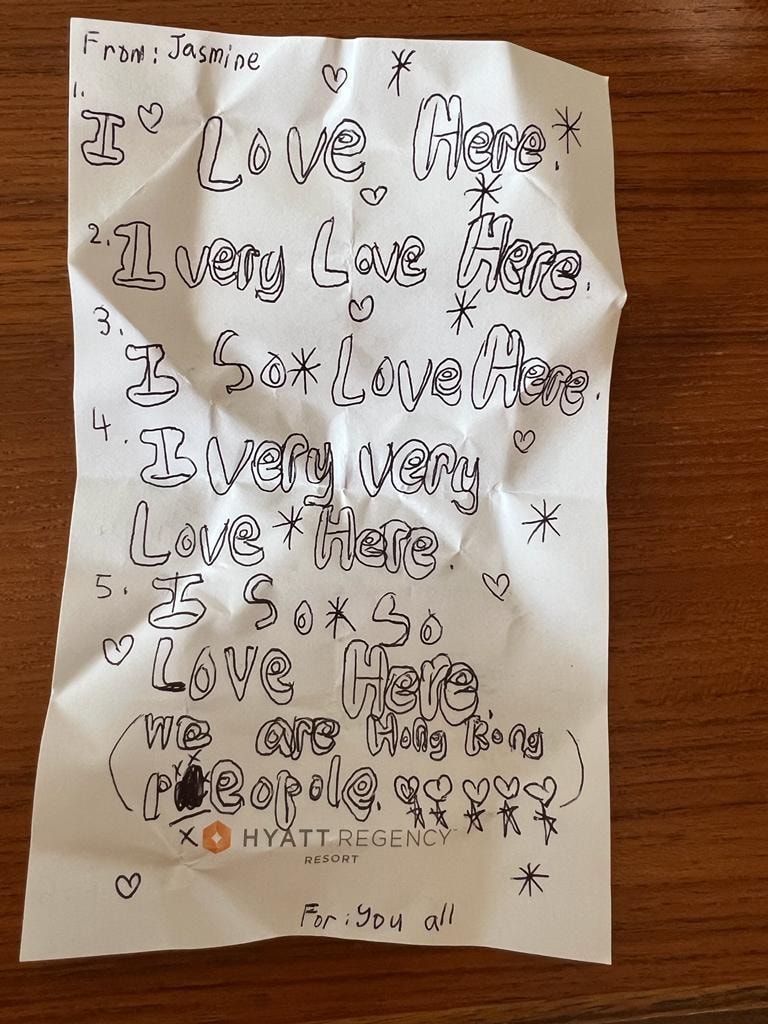 From: Jasmine
1.
I Love Here.
2. I very Love Here.
3.
I So Love Here.
4. I very very
Love Here.
5. I So So
Love Here.
(we are Hong Kong
people.)
HYATT REGENCY™
RESORT
For: You all